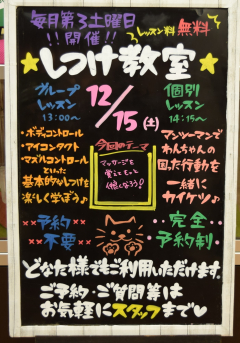 毎月第3土曜日
!!開催!!
レッスン料 無料
★しつけ教室★
グループ
レッスン
13:00〜
12/15(土)
個別
レッスン
14:15〜
・ボディコントロール
・アイコンタクト
・マズルコントロール
といった
基本的なしつけを
楽しく学ぼう♪
今回のテーマ
マッサージを
覚えてもっと
仲良くなろう!
マンツーマンで
わんちゃんの
困った行動を
一緒に
カイケツ♪
××予約××
不要
完全
予約制
どなた様でもご利用いただけます。
ご予約・ご質問等は
お気軽にスタッフまで♥